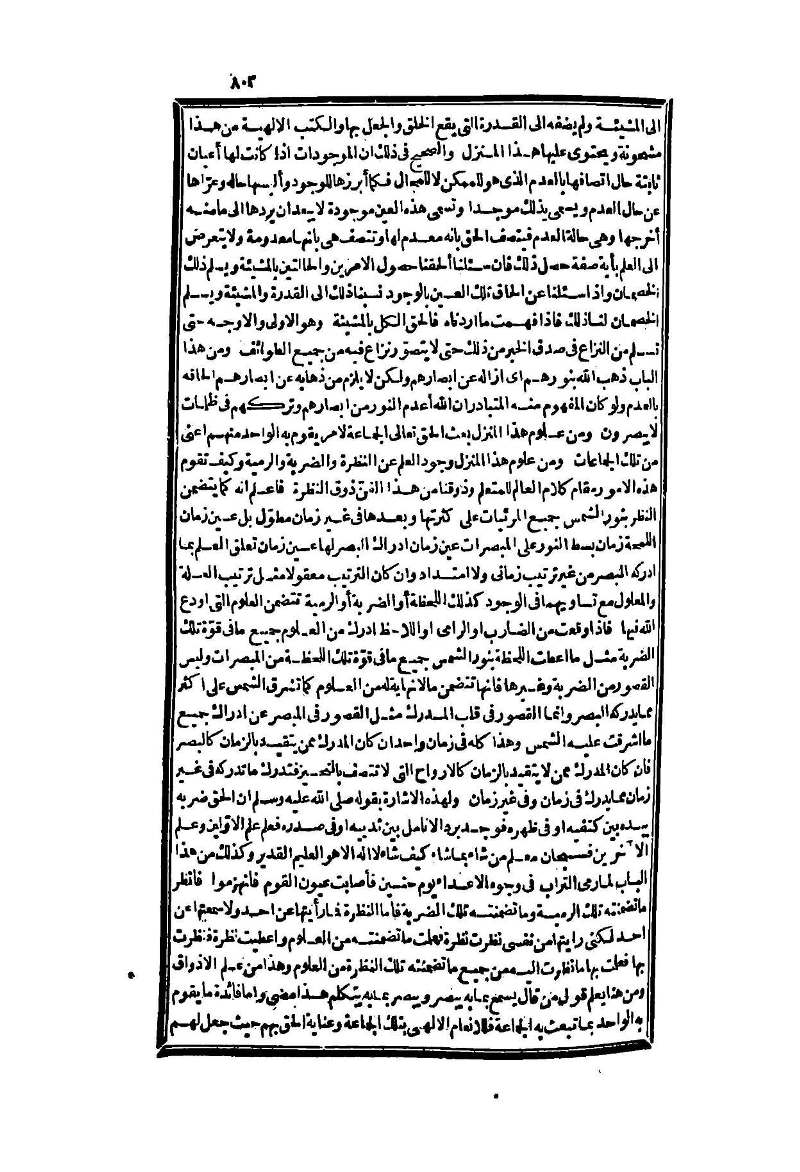 ٨٠٣
الى المشيئة ولم يضفه الى القدرة التي يقع الخلق والجعل بها والكتب الالهية من هذا
مشحونة ويحتوى عليها هذا المنزل والصحيح فى ذلك ان الموجودات اذا كانت لها أعيان
ثابتة حال اتصافها بالعدم الذى هو للممكن لا للمحال فكما أبرزها للوجود وألبسها حاله وعرّاها
عن حال العدم ويسمى بذلك موجدا وتسمى هذه العين موجودة لا يبعد ان يردّها الى ما منه
أخرجها وهى حالة العدم فيتصف الحق بانه معدم لها وتتصف هى بانها معدومة ولا يتعرض
الى العلم بأية صفة حصل ذلك فان سئلنا ألحقنا حصول الامرين والحالتين بالمشيئة ويسلم ذلك
الخصمان واذا سئلنا عن الحاق تلك العين بالوجود نسبنا ذلك الى القدرة والمشيئة ويسلم
الخصمان لنا ذلك فاذا فهمت ما اردناه فالحق الكل بالمشيئة وهو الاولى والاوجه حتى
تسلم من النزاع فى صدق الخبر من ذلك حتى لا يتصوّر نزاع فيه من جميع الطوائف ومن هذا
الباب ذهب الله بنورهم اى ازاله عن ابصارهم ولكن لا يلزم من ذهابه عن ابصارهم الحاقه
بالعدم ولو كان المفهوم منه المتبادر ان الله أعدم النور من ابصارهم وتركهم فى ظلمات
لا يبصرون ومن علوم هذا المنزل بعث الحق تعالى الجماعة لامر يقوم به الواحد منهم اعنى
من تلك الجماعات ومن علوم هذا المنزل وجود العلم عن النظرة والضربة والرمية وكيف تقوم
هذه الامور مقام كلام العالم للمتعلم وذوقنا من هذا الفنّ ذوق النظرة فاعلم انه كما يتضمن
النظر بنور الشمس جميع المرئيات على كثرتها وبعدها فى غير زمان مطوّل بل عين زمان
اللمحة زمان بسط النور على المبصرات عين زمان ادراك البصر لها عين زمان تعلق العلم بما
ادركه البصر من غير ترتيب زمانى ولا امتداد وان كان الترتيب معقولا مثل ترتيب العلة
والمعلول مع تساويهما فى الوجود كذلك اللحظة أو الضربة أو الرمية تتضمن العلوم التى اودع
الله فيها فاذا وقعت من الضارب او الرامى او اللاحظ ادرك من العلوم جميع ما فى قوّة تلك
الضربة مثل ما اعطت اللحظة بنور الشمس جميع ما فى قوّة تلك اللحظة من المبصرات وليس
القصور من الضربة وغيرها فانها تتضمن ما لا نهاية له من العلوم كما تشرق الشمس على اكثر
مما يدركه البصر وانما القصور فى قلب المدرك مثل القصور فى المبصر عن ادراك جميع
ما اشرقت عليه الشمس وهذا كله فى زمان واحد ان كان المدرك ممن يتقيد بالزمان كالبصر
فان كان المدرك ممن لا يتقيد بالزمان كالارواح التى لا تتصف بالتحيز فتدرك ما تدركه فى غير
زمان مما يدرك فى زمان وفى غير زمان ولهذه الاشارة بقوله صلى الله عليه وسلم ان الحق ضربه
بيده بين كتفيه او فى ظهره فوجد برد الانامل بين ثدييه او فى صدره فعلم علم الاوّلين وعلم
الآخرين فسبحان معلم من شاء بما شاء كيف شاء لا اله الا هو العليم القدير وكذلك من هذا
الباب لما رمى التراب فى وجوه الاعداء يوم حنين فأصابت عيون القوم فانهزموا فانظر
ما تضمنته تلك الرمية وما تضمنته تلك الضربة فأما النظرة فما رأيتها عن احد ولا سمعتها عن
احد لكنى رايتها من نفسى نظرت نظرة فعلمت ما تضمنته من العلوم واعطيت نظرة فنظرت
بها فعلمت بها ما نظرت اليه من جميع ما تضمنته تلك النظرة من العلوم وهذا من علم الاذواق
ومن هنا يعلم قولى من قال يسمع بما به يبصر ويبصر بما به يتكلم هذا مضى واما فائدة ما يقوم
به الواحد بما تبعث به الجماعة فللانعام الالهى بتلك الجماعة وعناية الحق بهم حيث جعل لهم